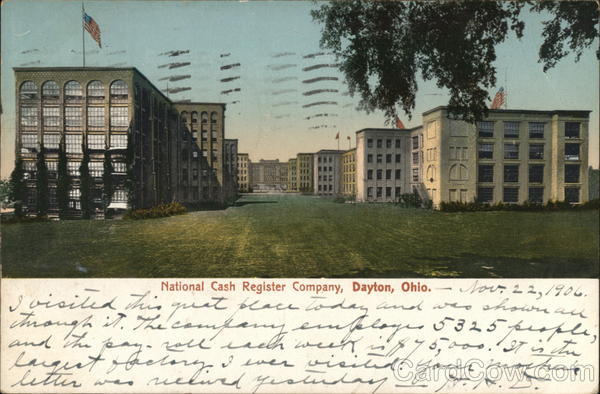 National Cash Register Company, Dayton, Ohio. — Nov. 22, 1906.
I visited this great place today and was shown all
through it. The company employs 5325 people,
and the pay-roll each week is $75,000. It is the
largest factory I ever visited. Your
letter was received yesterday
CardCow.com